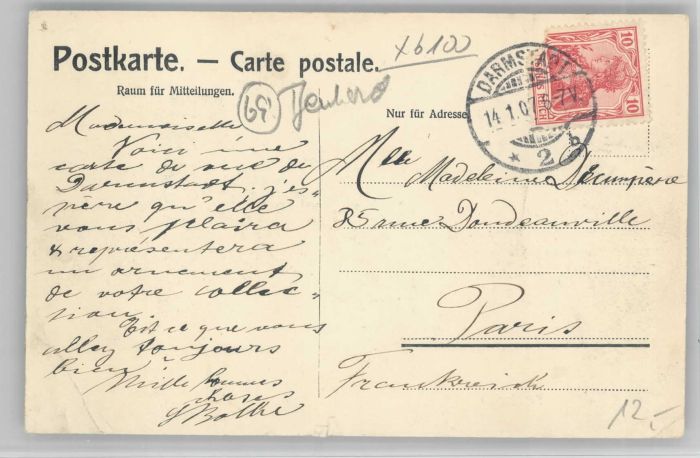 Postkarte. — Carte postale.
Raum für Mitteilungen.
Nur für Adresse
xb100
69
10
10
DARMSTADT
14.1.07. 6-7 N
* 2 b
Mademoiselle
Voici une
carte de vue de
Darmstadt. j'es-
père qu'elle
vous plaira
& représentera
un ornement
de votre collec-
tion.
Est ce que vous
allez toujours
bien
Mille bonnes
choses
Mlle Madeleine
35 rue Doudeauville
Paris
Frankreich
12,-